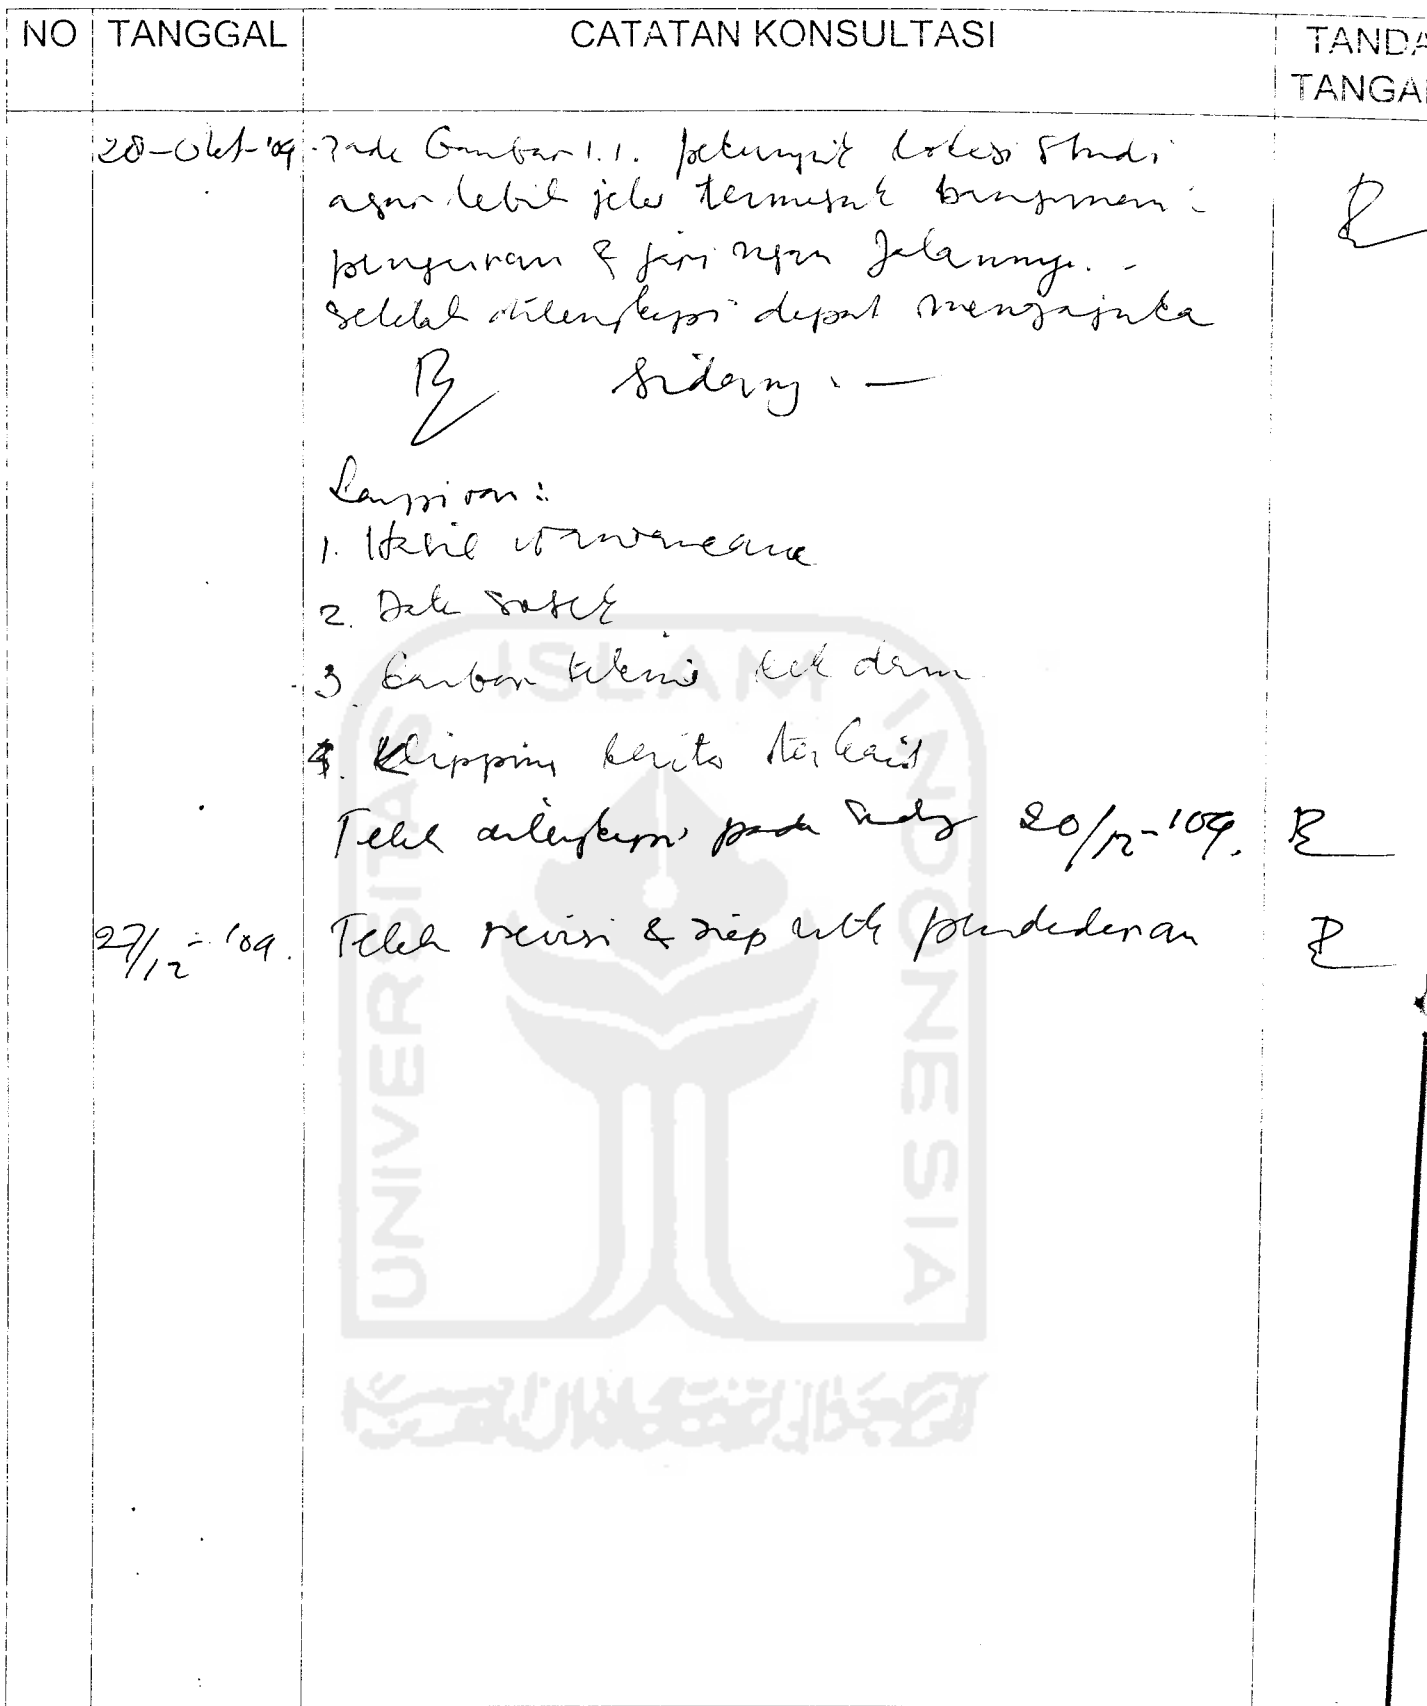 NO TANGGAL CATATAN KONSULTASI TANDA
TANGA
28-Okt-'09 - Pada Gambar 1.1. petunjuk lokasi studi
agar lebih jelas termasuk bangunan
pengairan & jaringan jalannya. -
Setelah dilengkapi dapat mengajuka
Sidang. —
Lampiran :
1. Hasil wawancara
2. Data sosek
3. Gambar teknis cek dam
4. Klipping berita terkait
Telah dilengkapi pada 20/12-'09.
27/12-'09. Telah revisi & siap utk pendadaran
UNIVERSITAS ISLAM INDONESIA